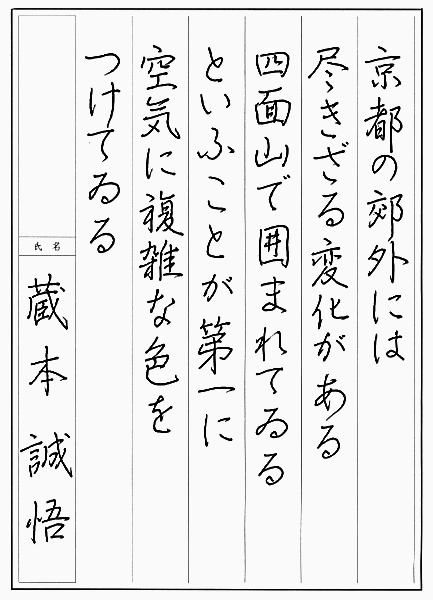 京都の郊外には
尽きざる変化がある
四面山で囲まれてゐる
といふことが第一に
空気に複雑な色を
つけてゐる
氏名
蔵本 誠悟